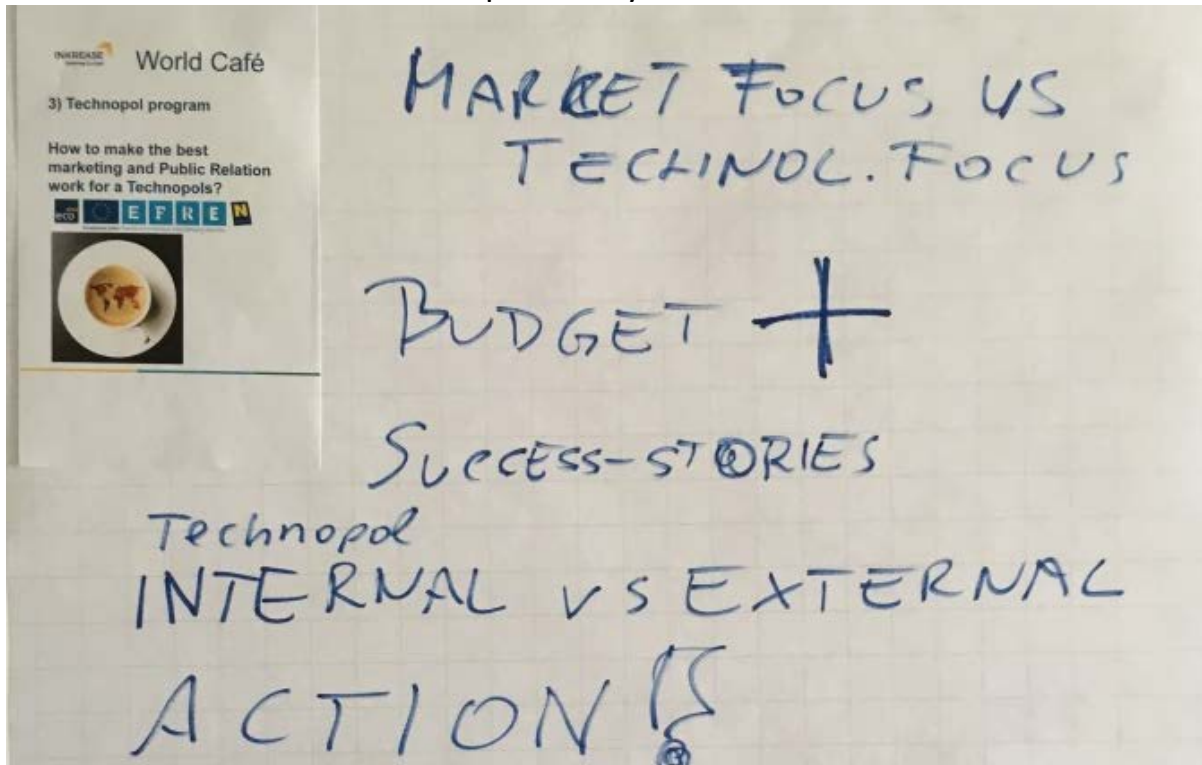 INKREASE
World Café
3) Technopol program
How to make the best
marketing and Public Relation
work for a Technopols?
eco
E F R E N
MARKET FOCUS VS
TECHNOL. FOCUS
BUDGET +
SUCCESS-STORIES
Technopol
INTERNAL VS EXTERNAL
ACTION